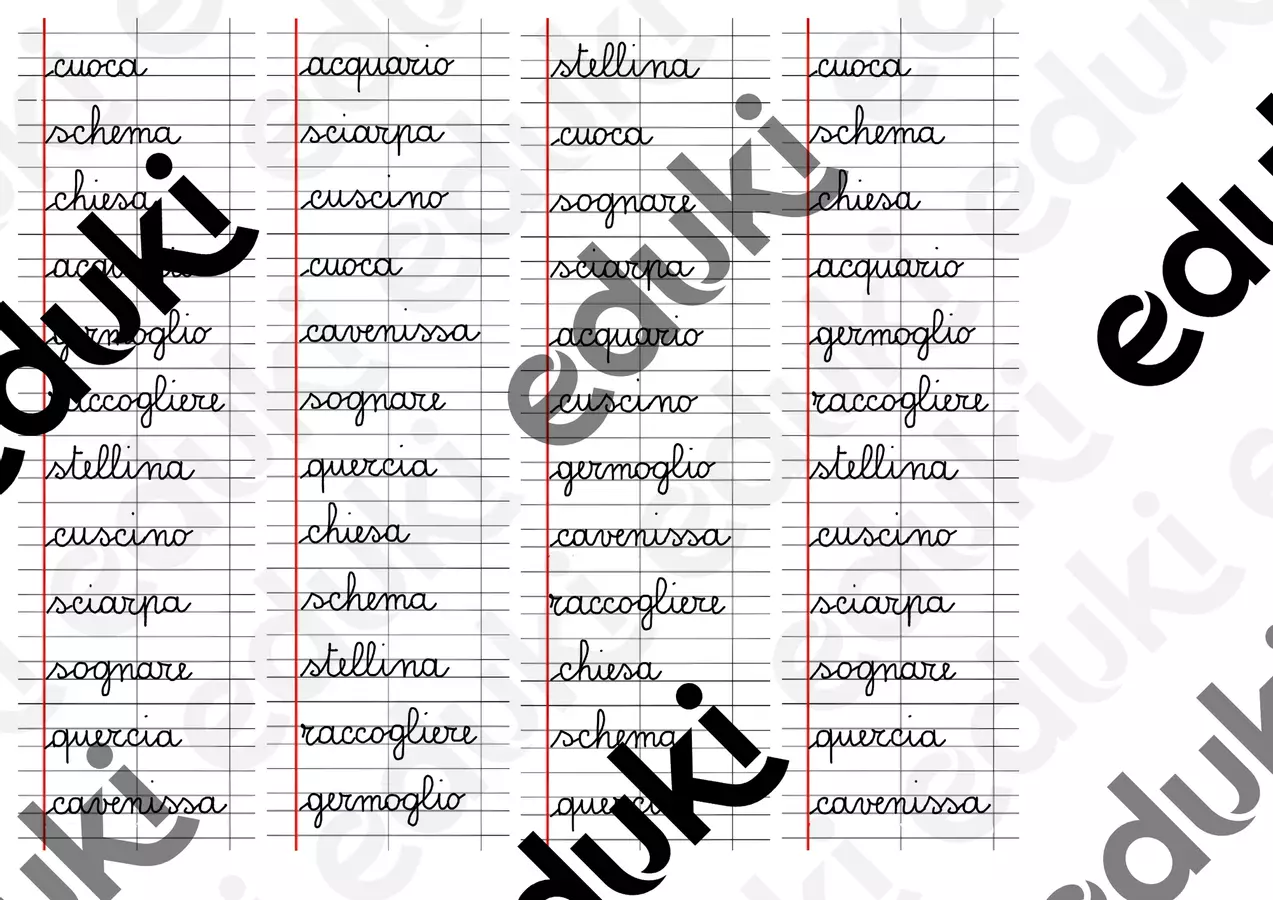 cuoca
schema
chiesa
acquario
germoglio
raccogliere
stellina
cuscino
sciarpa
sognare
quercia
cavenissa
acquario
sciarpa
cuscino
cuoca
cavenissa
sognare
quercia
chiesa
schema
stellina
raccogliere
germoglio
stellina
cuoca
sognare
sciarpa
acquario
cuscino
germoglio
cavenissa
raccogliere
chiesa
schema
quercia
cuoca
schema
chiesa
acquario
germoglio
raccogliere
stellina
cuscino
sciarpa
sognare
quercia
cavenissa
eduki
eduki
eduki
eduki
eduki
eduki